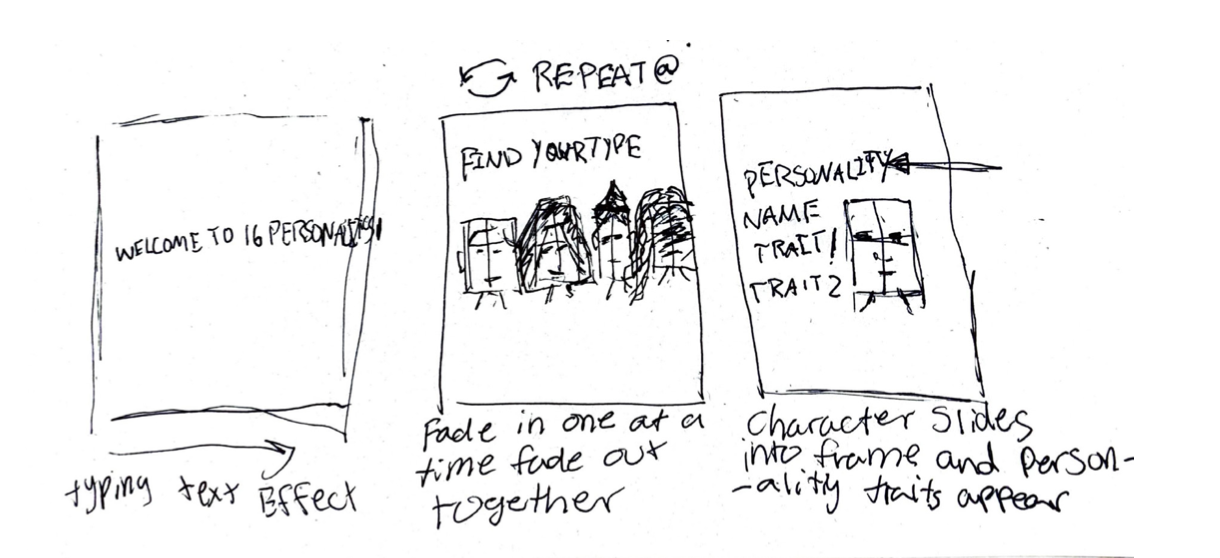 WELCOME TO 16 PERSONALITIES!
typing text Effect
REPEAT @
FIND YOUR TYPE
Fade in one at a
time fade out
together
PERSONALITY
NAME
TRAIT 1
TRAIT 2
Character Slides
into frame and person-
-ality traits appear